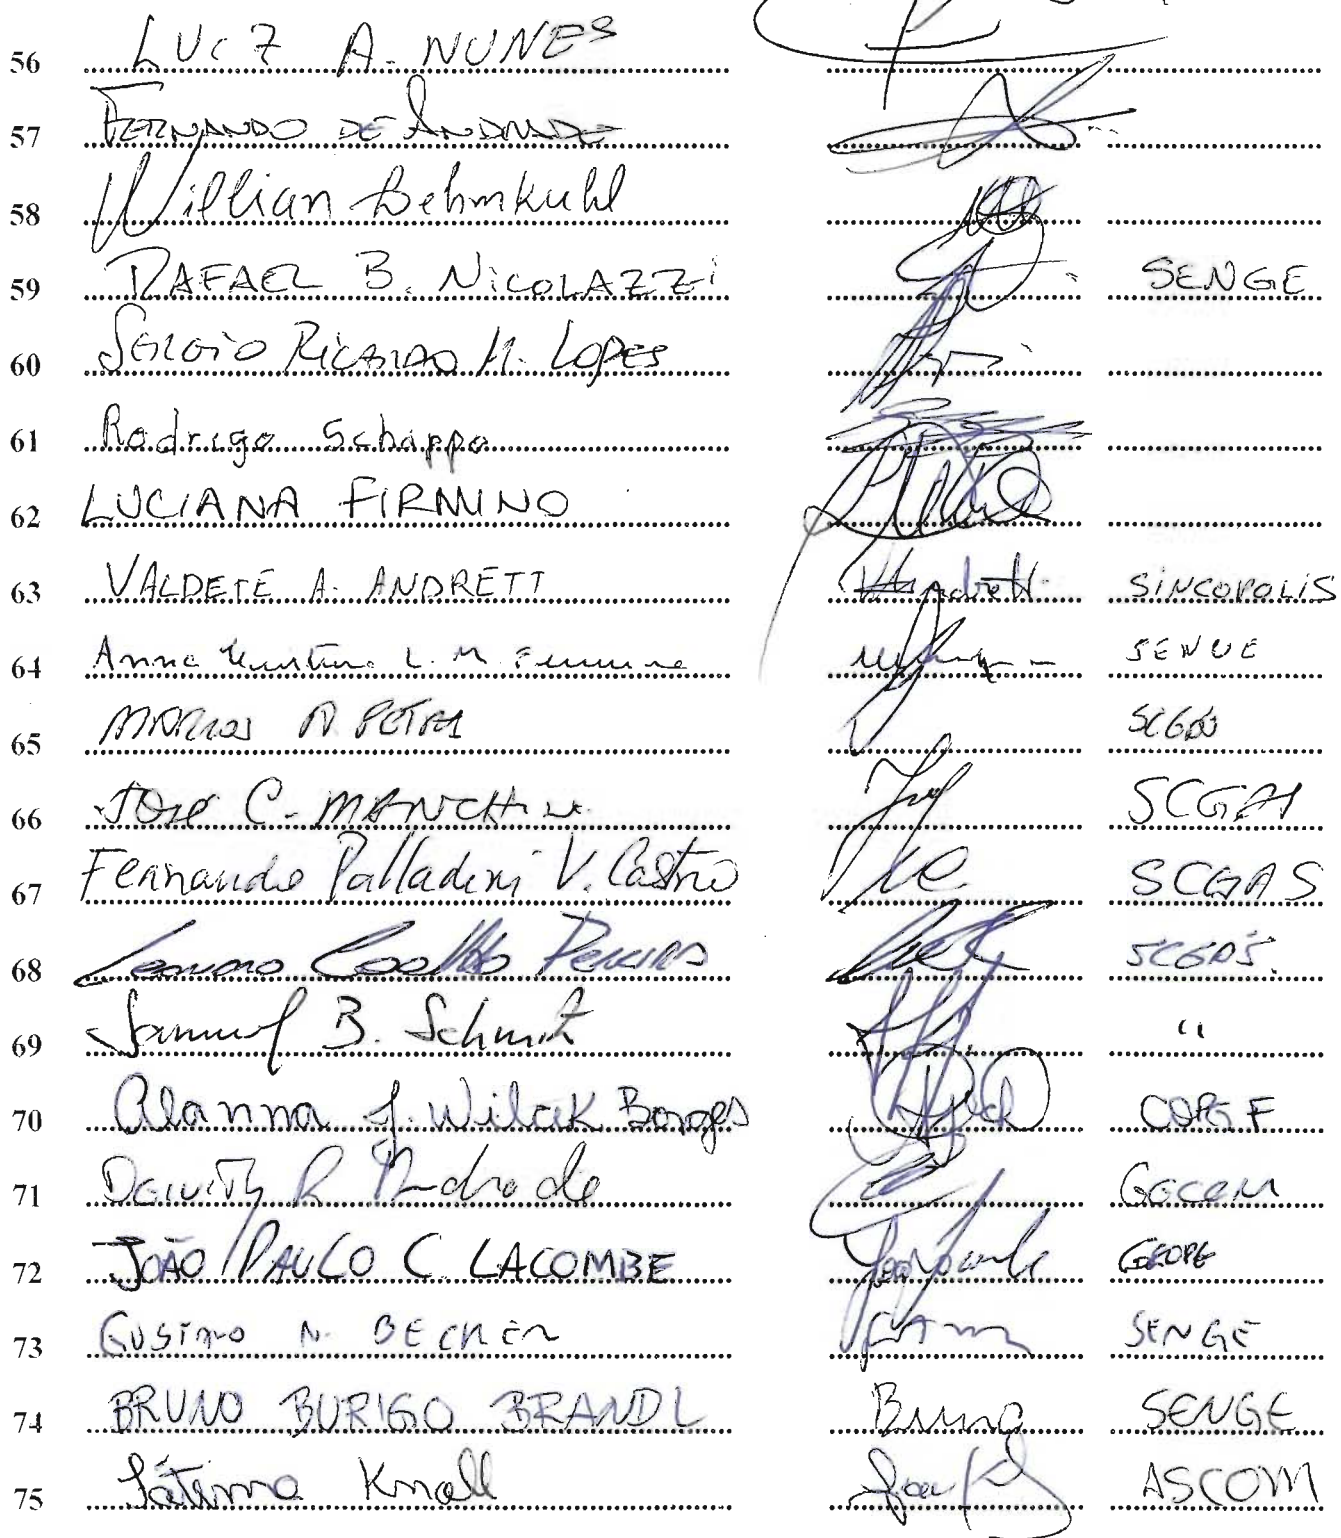 56 LUIZ A. NUNES
57 FERNANDO DE ANDRADE
58 Willian Behmkuhl
59 RAFAEL B. NICOLAZZI SENGE
60 SERGIO RICARDO M. LOPES
61 Rodrigo Schappo
62 LUCIANA FIRMINO
63 VALDETE A. ANDRETT SINCOPOLIS
64 Anna L. M.
65 MARCOS A PETRI
66 JOSÉ C. SCGAS
67 Fernando Palladini V. Castro SCGAS
68 Leandro Coelho Pereira SCGÁS
69 Samuel B. Schmit "
70 Alanna J. Wilcik Borges
71 R Andrade GECOM
72 JOÃO PAULO C. LACOMBE GEOPE
73 GUSTAVO N. BECKER SENGE
74 BRUNO BURIGO BRANDL Bruno SENGE
75 Fátima Knoll ASCOM